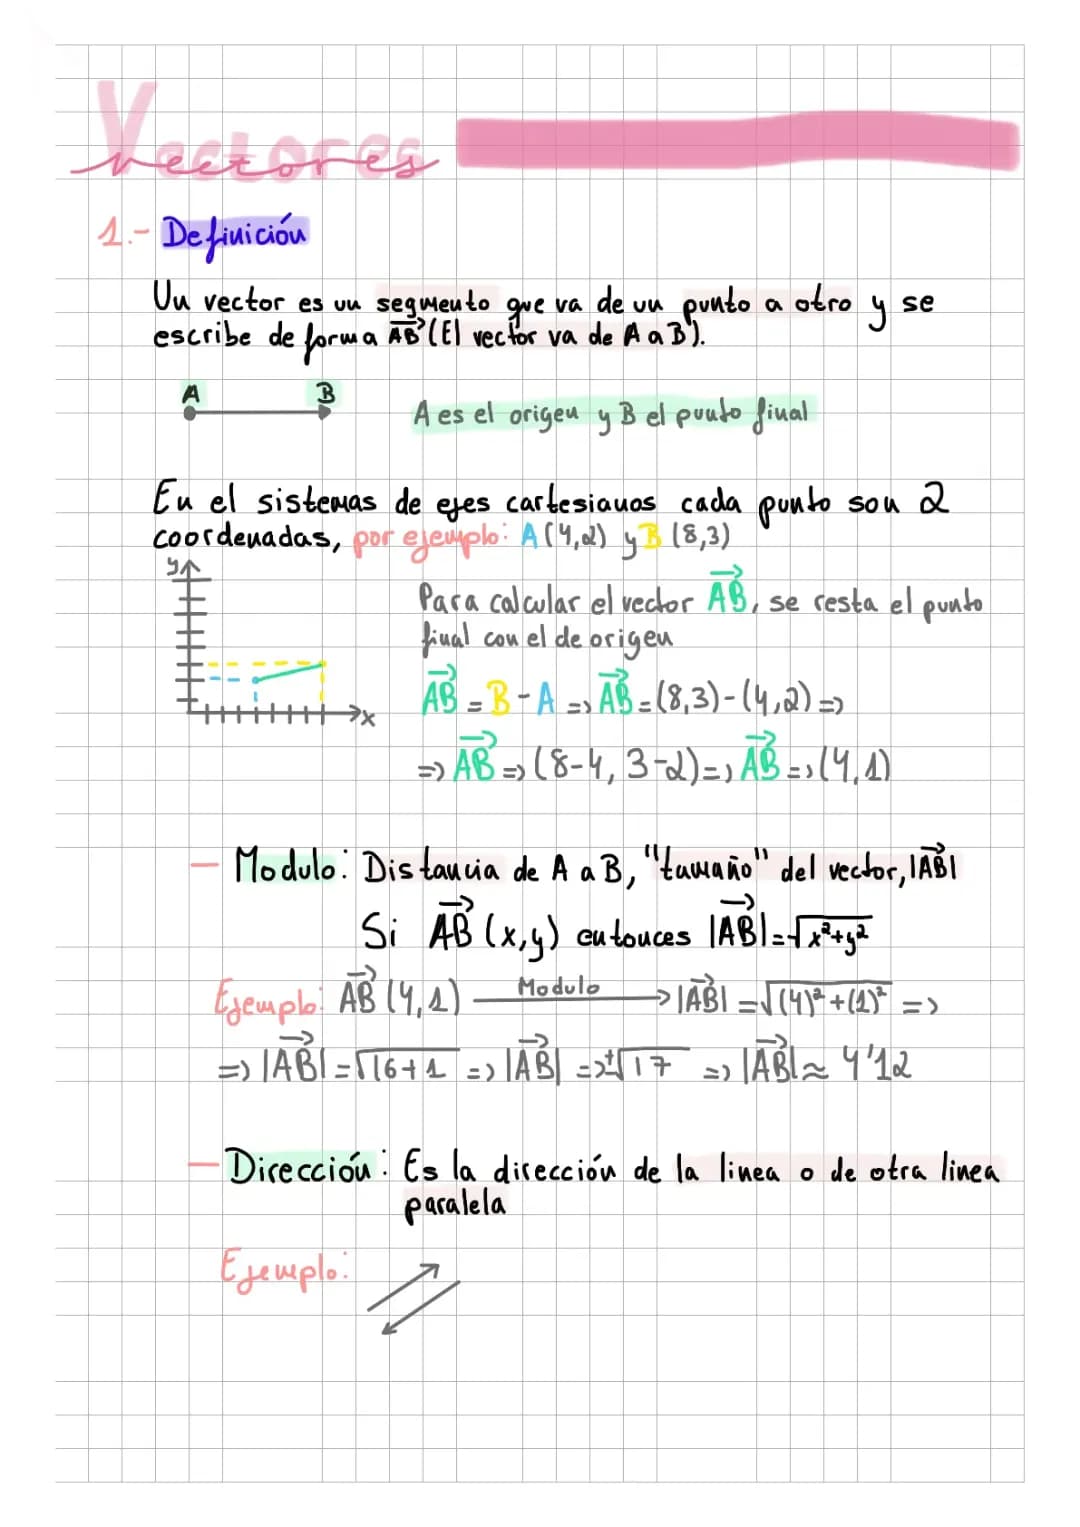 Vectores
vectores
1.- Definición
Un vector es un segmento que va de un punto a otro y se
escribe de forma A⃗B⃗ (El vector va de A a B).
A B
A es el origen y B el punto final
En el sistemas de ejes cartesianos cada punto son 2
coordenadas, por ejemplo: A (4,2) y B (8,3)
y
Para calcular el vector A⃗B⃗, se resta el punto
final con el de origen
A⃗B⃗ = B - A => A⃗B⃗ = (8,3)-(4,2) =>
x
=> A⃗B⃗ => (8-4, 3-2) => A⃗B⃗ => (4,1)
- Modulo: Distancia de A a B, "tamaño" del vector, |A⃗B⃗|
Si A⃗B⃗ (x,y) entonces |A⃗B⃗| = √x²+y²
Ejemplo: A⃗B⃗ (4,1) Modulo → |A⃗B⃗| = √(4)²+(1)² =>
=> |A⃗B⃗| = √16+1 => |A⃗B⃗| => ±√17 => |A⃗B⃗| ≈ 4'12
- Dirección: Es la dirección de la linea o de otra linea
paralela
Ejemplo: